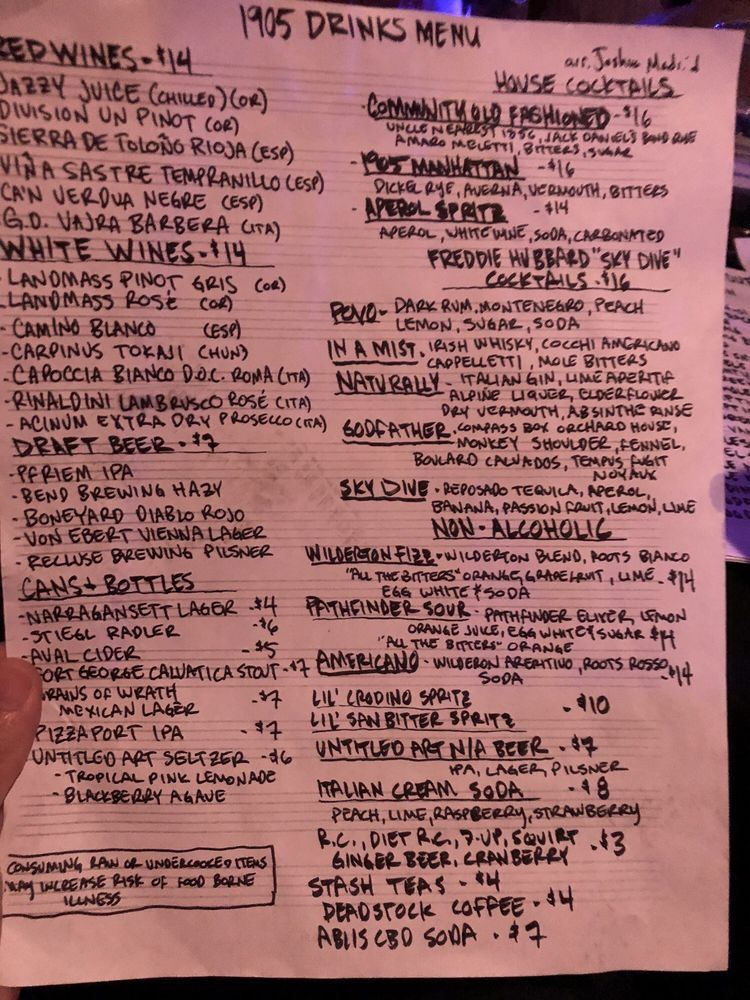 1905 DRINKS MENU
arr. Joshua Madrid
RED WINES - $14
JAZZY JUICE (CHILLED) (OR)
DIVISION UN PINOT (OR)
SIERRA DE TOLOÑO RIOJA (ESP)
VIÑA SASTRE TEMPRANILLO (ESP)
CA'N VERDURA NEGRE (ESP)
G.D. VAJRA BARBERA (ITA)
WHITE WINES - $14
- LANDMASS PINOT GRIS (OR)
- LANDMASS ROSÉ (OR)
- CAMINO BLANCO (ESP)
- CARPINUS TOKAJI (HUN)
- CAPOCCIA BIANCO D.O.C. ROMA (ITA)
- RINALDINI LAMBRUSCO ROSÉ (ITA)
- ACINUM EXTRA DRY PROSECCO (ITA)
DRAFT BEER - $7
- PFRIEM IPA
- BEND BREWING HAZY
- BONEYARD DIABLO ROJO
- VON EBERT VIENNA LAGER
- RECLUSE BREWING PILSNER
CANS + BOTTLES
- NARRAGANSETT LAGER - $4
- STIEGL RADLER - $6
- AVAL CIDER - $5
FORT GEORGE CALVATICA STOUT - $7
GRAINS OF WRATH - $7
MEXICAN LAGER
PIZZA PORT IPA - $7
UNTITLED ART SELTZER - $6
- TROPICAL PINK LEMONADE
- BLACKBERRY AGAVE
CONSUMING RAW OR UNDERCOOKED ITEMS
MAY INCREASE RISK OF FOOD BORNE
ILLNESS
HOUSE COCKTAILS
- COMMUNITY OLD FASHIONED - $16
UNCLE NEAREST 1856, JACK DANIEL'S BOND RYE
AMARO MELETTI, BITTERS, SUGAR
- 1905 MANHATTAN - $16
DICKEL RYE, AVERNA, VERMOUTH, BITTERS
- APEROL SPRITZ - $14
APEROL, WHITE WINE, SODA, CARBONATED
FREDDIE HUBBARD "SKY DIVE"
COCKTAILS - $16
POVO - DARK RUM, MONTENEGRO, PEACH
LEMON, SUGAR, SODA
IN A MIST - IRISH WHISKY, COCCHI AMERICANO
CAPPELLETTI, MOLE BITTERS
NATURALLY - ITALIAN GIN, LIME APERITIF
ALPINE LIQUER, ELDERFLOWER
DRY VERMOUTH, ABSINTHE RINSE
GODFATHER - COMPASS BOX ORCHARD HOUSE,
MONKEY SHOULDER, FENNEL,
BOULARD CALVADOS, TEMPUS FUGIT
NOYAUX
SKY DIVE - REPOSADO TEQUILA, APEROL,
BANANA, PASSION FRUIT, LEMON, LIME
NON-ALCOHOLIC
WILDERTON FIZZ - WILDERTON BLEND, ROOTS BIANCO
"ALL THE BITTERS" ORANGE, GRAPEFRUIT, LIME - $14
EGG WHITE & SODA
PATHFINDER SOUR - PATHFINDER ELIXER, LEMON
ORANGE JUICE, EGG WHITE & SUGAR $14
"ALL THE BITTERS" ORANGE
AMERICANO - WILDERON APERITIVO, ROOTS ROSSO - $14
SODA
LIL' CRODINO SPRITZ - $10
LIL' SAN BITTER SPRITZ
UNTITLED ART N/A BEER - $7
IPA, LAGER, PILSNER
ITALIAN CREAM SODA - $8
PEACH, LIME, RASPBERRY, STRAWBERRY
R.C., DIET R.C., 7-UP, SQUIRT - $3
GINGER BEER, CRANBERRY
STASH TEAS - $4
DEADSTOCK COFFEE - $4
ABLIS CBD SODA - $7